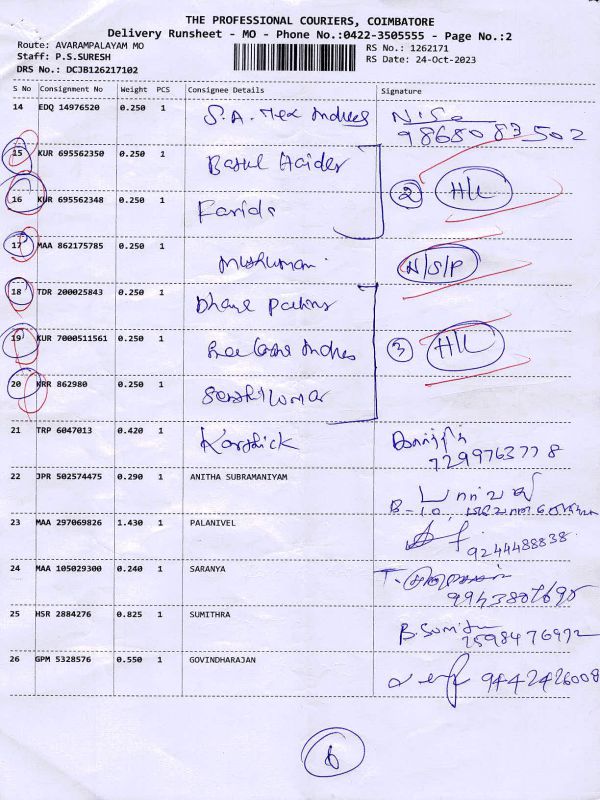 THE PROFESSIONAL COURIERS, COIMBATORE
Delivery Runsheet - MO - Phone No.:0422-3505555 - Page No.:2
Route: AVARAMPALAYAM MO
RS No.: 1262171
Staff: P.S.SURESH
RS Date: 24-Oct-2023
DRS No.: DCJB126217102
S No Consignment No Weight PCS Consignee Details Signature
14 EDQ 14976520 0.250 1 S.A. Tex
9868083502
15 KUR 695562350 0.250 1 Haider
2 H/L
16 KUR 695562348 0.250 1 Farida
17 MAA 862175785 0.250 1
N/S/P
18 TDR 200025843 0.250 1
19 KUR 7000511561 0.250 1
3 H/L
20 KRR 862980 0.250 1 Senthilkumar
21 TRP 6047013 0.420 1 Karthick
7299763778
22 JPR 502574475 0.290 1 ANITHA SUBRAMANIYAM
23 MAA 297069826 1.430 1 PALANIVEL
9244488838
24 MAA 105029300 0.240 1 SARANYA
25 HSR 2884276 0.825 1 SUMITHRA B. Sumithra
26 GPM 5328576 0.550 1 GOVINDHARAJAN 9442426008
6